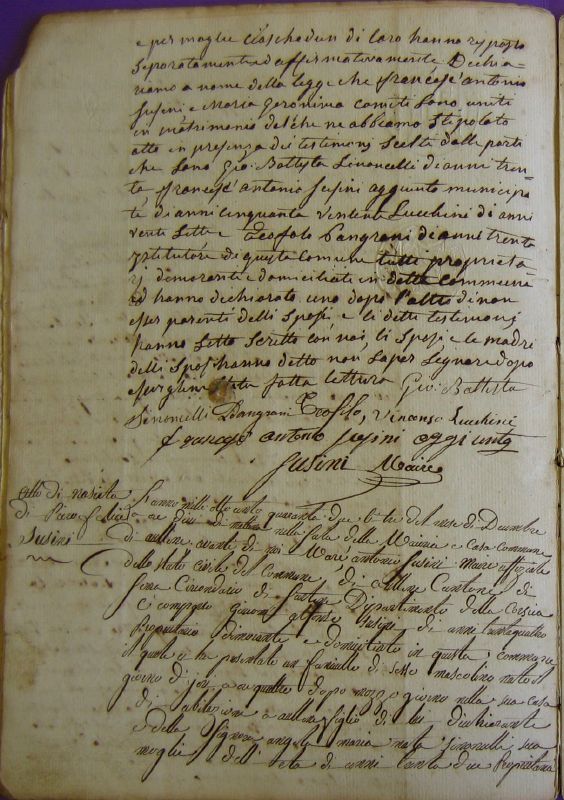 e per moglie ciaschedun di loro hanno risposto
separatamente ed affermativamente Dichia-
riamo a nome della legge che francesc'antonio
Susini e Maria Geronima comiti sono uniti
in matrimonio del che ne abbiamo stipolato
atto in presenza dei testimonj scelti dalle parti
che sono Gio: Battista Simoncelli di anni tren=
ta francesc'antonio Susini aggiunto municipa
le di anni cinquanta Lucchini di anni
venti sette e Teofolo Pangrani di anni trenta
istitutore di questa comune tutti proprieta
rj dimoranti e domiciliati in detta Commune
ed hanno dichiarato uno dopo l'altro di non
esser parenti delli sposi e li detti testimonj
hanno sotto scritto con noi, li sposi e le madri
delli sposi hanno detto non saper segnare dopo
fatta lettura Gio: Battista
Simoncelli Pangrani Teofilo, Vincenso Lucchini
francesc' antonio Susini aggiunto
Susini Maire
atto di nascita
di Felice
Susini
L'anno mille otto cento quaranta due li tre del mese di Decembre
ore di matina nella Sala della Mairie e casa commune
di aullene avante di noi Marc'antonio Susini maire uffiziale
dello stato civile del Commune di aullene Cantone di
Sera Circondario di Sartene Dipartimento della Corsica
E comparso Susini di anni trentaquattro
Proprietario Dimorante e domiciliato in questa commune
il quale ci ha presentato un fanciullo di sesso mascolino nato il
giorno di jeri a ore quattro dopo mezzo giorno nella sua casa
di abitazione a aullene figlio di lui dichiarante
e della Signora angela maria nata simoncelli sua
moglie dell'età di anni trenta due Proprietaria